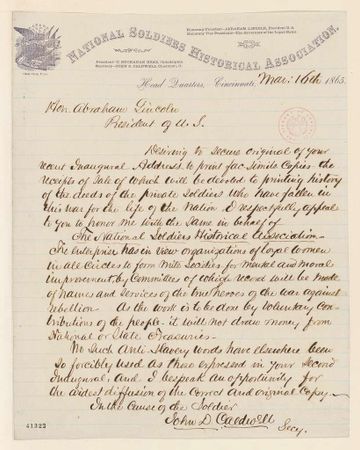 NATIONAL SOLDIERS HISTORICAL ASSOCIATION.
Head Quarters, Cincinnati, Mar: 16th 1865.
Hon. Abraham Lincoln
President of U. S.
Desiring to secure original of your
recent Inaugural Address to print fac-simile Copies the
receipts of Sale of which will be devoted to printing history
of the deeds of the private Soldiers who have fallen in
this war for the life of the Nation I respectfully appeal
to you to honor me with the Same in behalf of
The National Soldiers Historical Association—
The Enterprise has in view organizations of loyal women
in all Circles to form Societies for mental and moral
improvement, by Committees of which record will be made
of names and services of the true heroes of the war against
rebellion— As the work is to be done by Voluntary Con-
tributions of the people— it will not draw money from
National or State Treasuries—
No Such Anti Slavery words have elsewhere been
So forcibly used as those expressed in your Second
Inaugural, And I bespeak an opportunity for
the widest diffusion of the Correct And original Copy—
In the Cause of the Soldier
John D. Caldwell
Secy.
41322